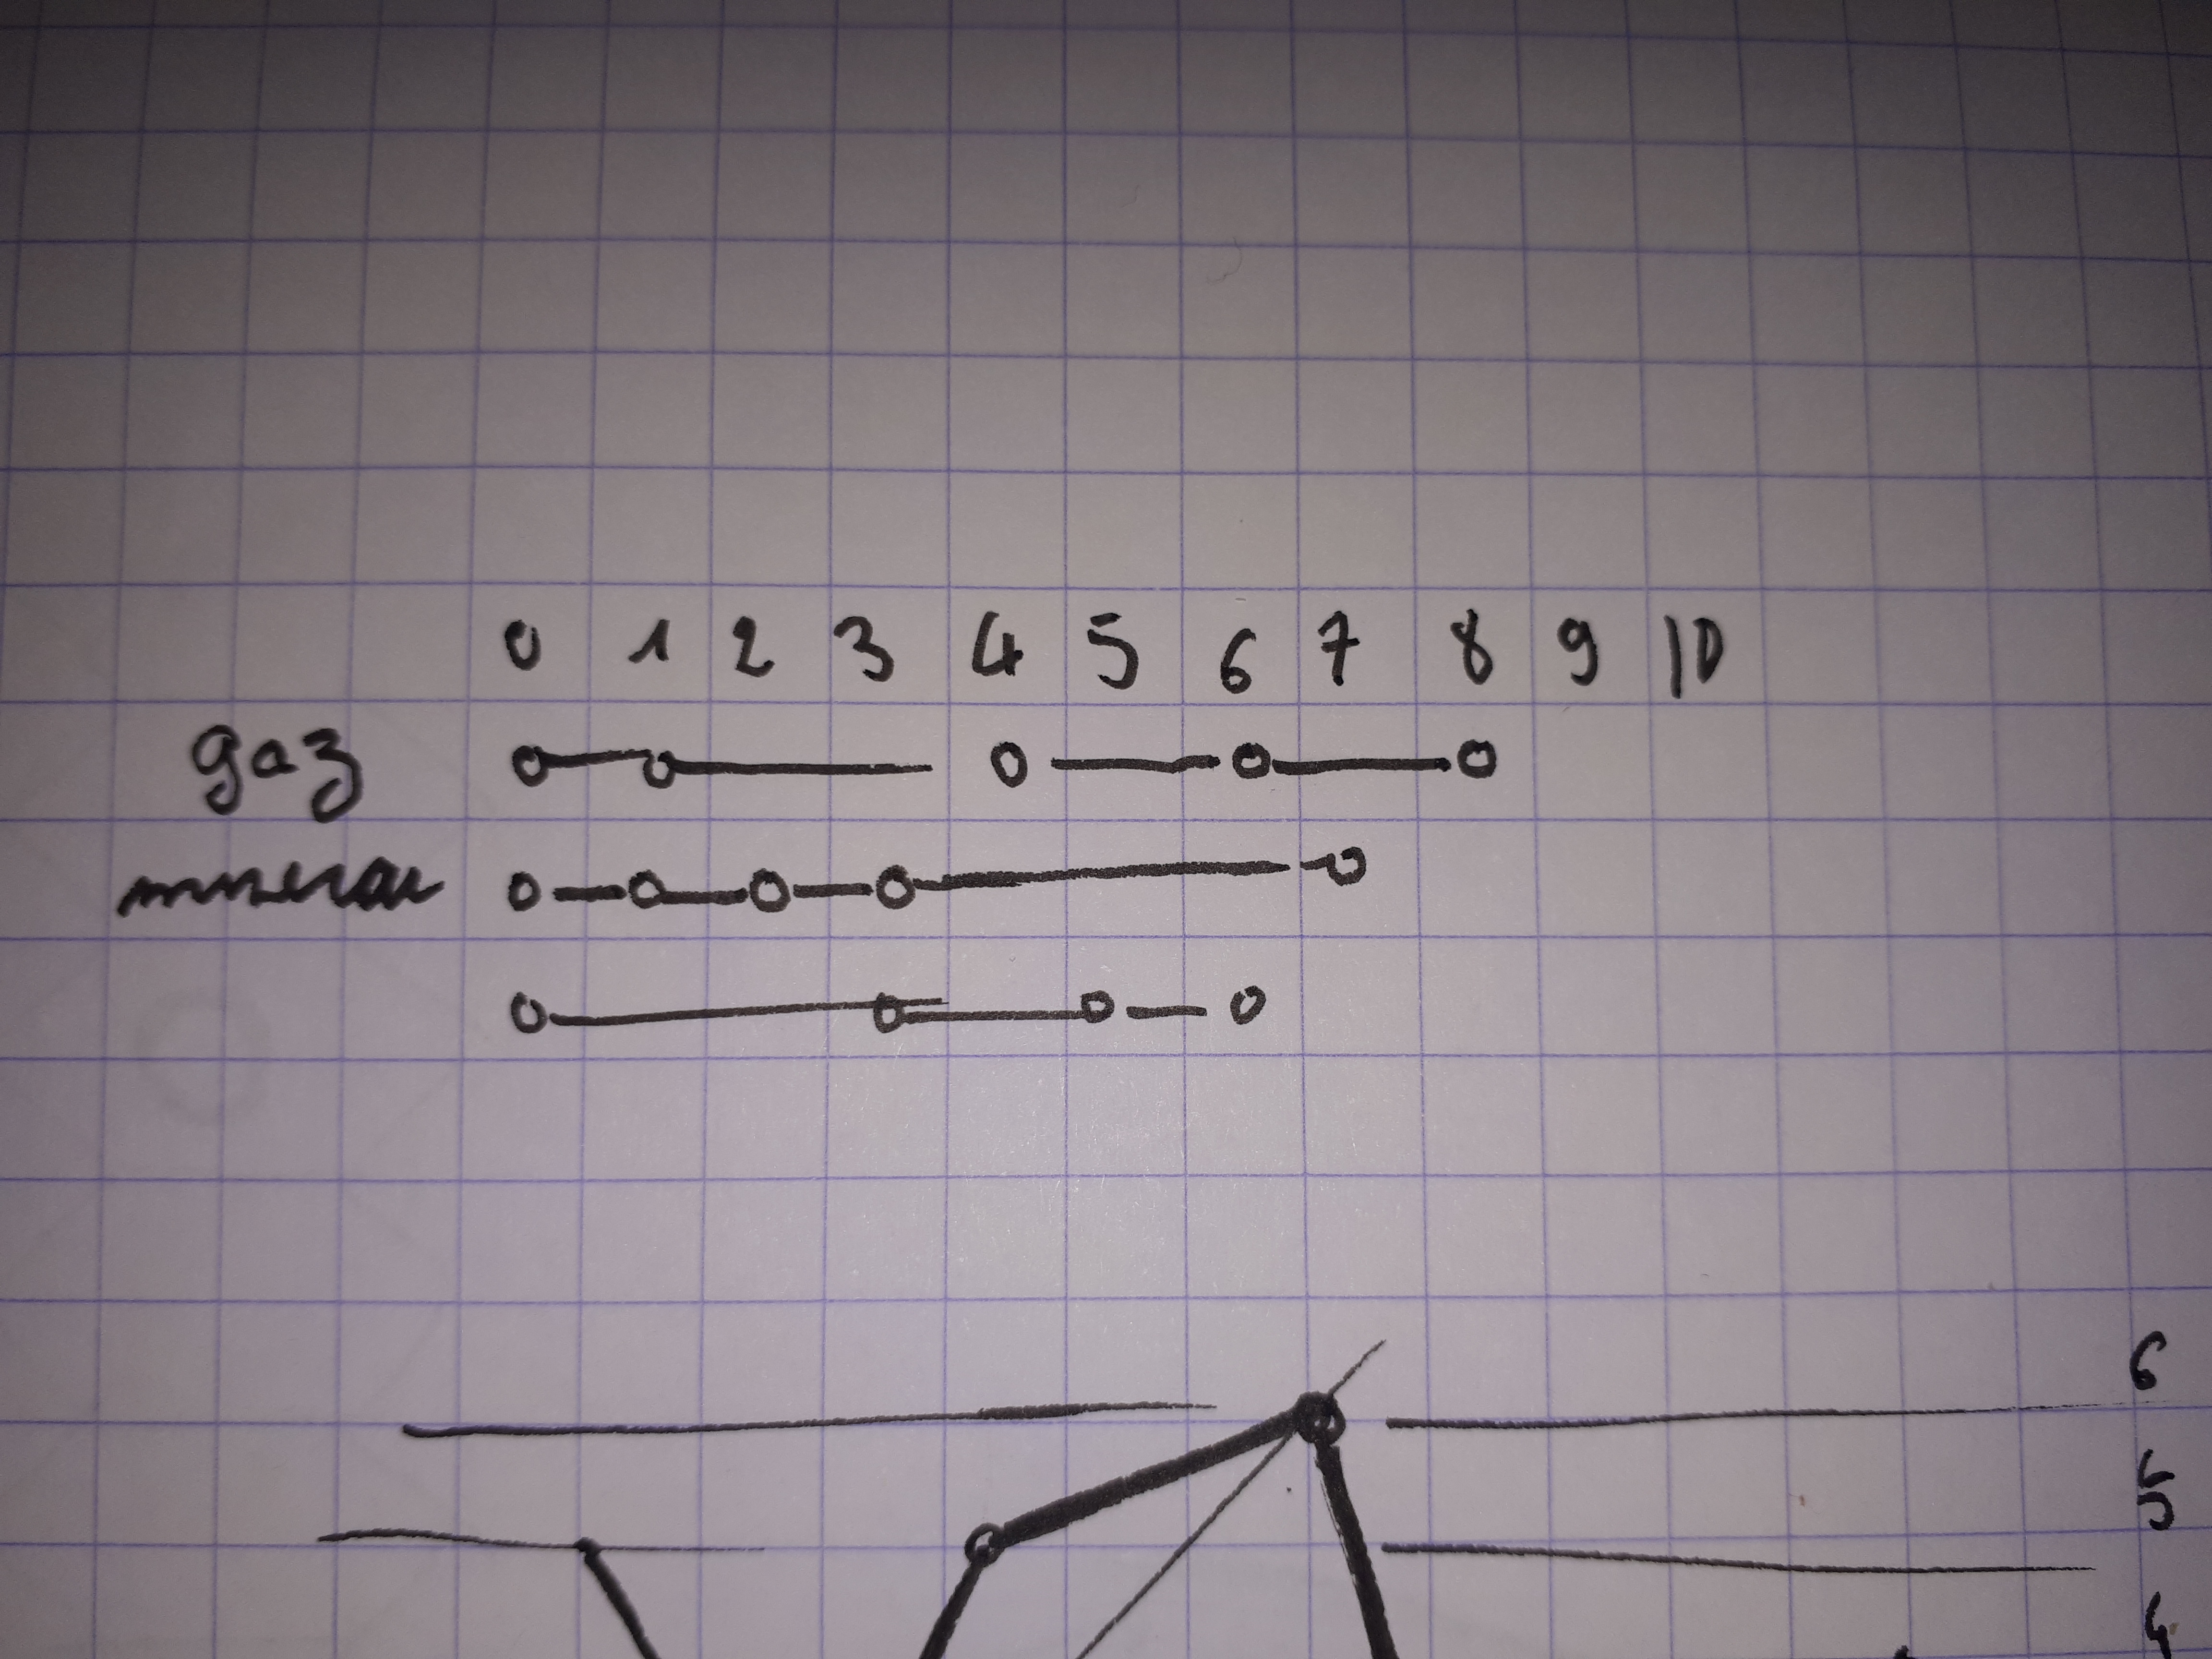 0 1 2 3 4 5 6 7 8 9 10
gaz
6
5
4